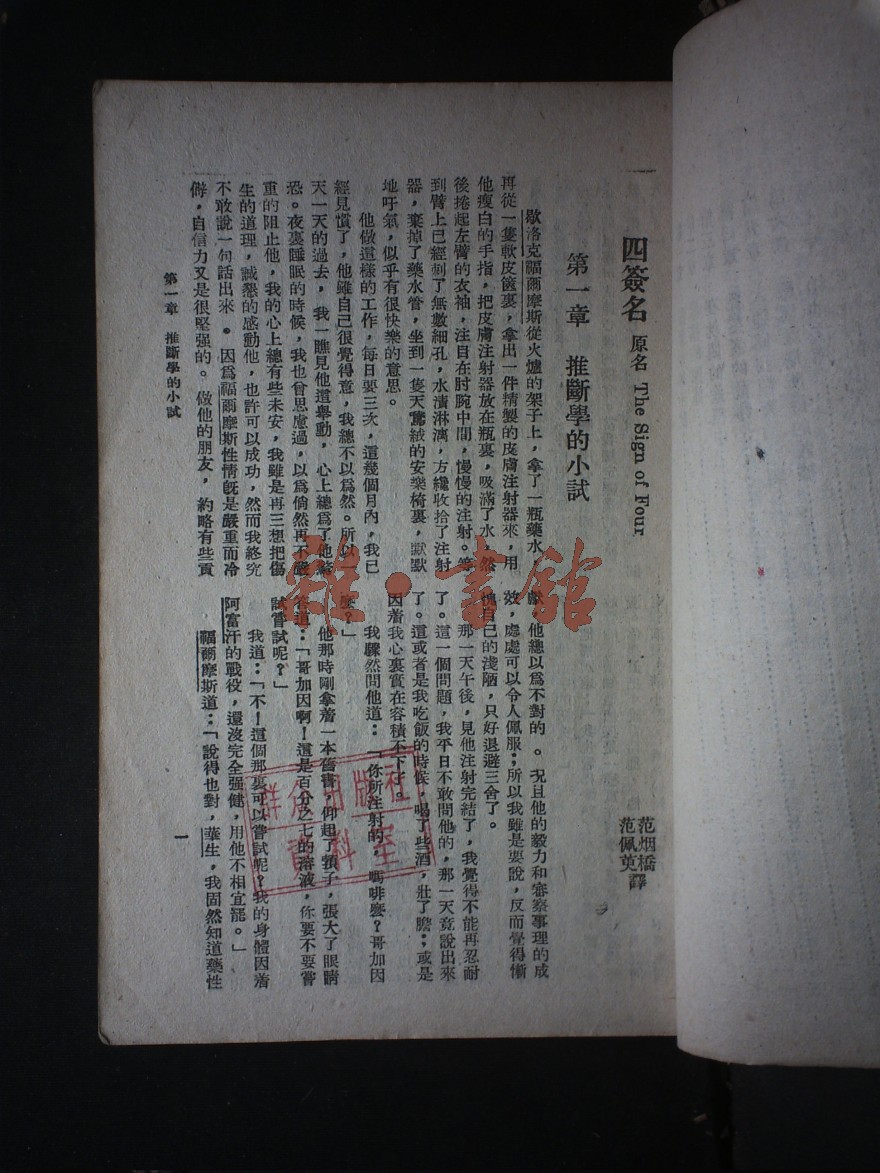 四簽名 原名 The Sign of Four
范烟橋
范佩萸 譯
第一章 推斷學的小試
歇洛克福爾摩斯從火爐的架子上，拿了一瓶藥水，
再從一隻軟皮篋裏，拿出一件精製的皮膚注射器來，用
他瘦白的手指，把皮膚注射器放在瓶裏，吸滿了水，然
後捲起左臂的衣袖，注目在肘腕中間，慢慢的注射。等
到臂上已經刺了無數細孔，水漬淋漓，方纔收拾了注射
器，棄掉了藥水管，坐到一隻天鵞絨的安樂椅裏，默默
地吁氣，似乎有很快樂的意思。
他做這樣的工作，每日要三次，這幾個月內，我已
經見慣了，他雖自己很覺得意，我總不以爲然。所以一
天一天的過去，我一瞧見他這舉動，心上總爲了他驚
恐。夜裏睡眠的時候，我也曾思慮過，以爲倘然再不嚴
重的阻止他，我的心上總有些未安，我雖是再三想把傷
生的道理，誠懇的感動他，也許可以成功，然而我終究
不敢說一句話出來。因爲福爾摩斯性情旣是嚴重而冷
僻，自信力又是很堅强的。做他的朋友，約略有些貢
獻，他總以爲不對的。况且他的毅力和審察事理的成
效，處處可以令人佩服；所以我雖是要說，反而覺得慚
愧自己的淺陋，只好退避三舍了。
那一天午後，見他注射完結了，我覺得不能再忍耐
了。這一個問題，我平日不敢問他的，那一天竟說出來
了。這或者是我吃飯的時候，喝了些酒，壯了膽；或是
因着我心裏實在容積不下了。
我驟然問他道：「你所注射的，嗎啡麽？哥加因
麽？」
他那時剛拿着一本舊書，仰起了頸子，張大了眼睛
答道：「哥加因啊！這是百分之七的溶液，你要不要嘗
試嘗試呢？」
我道：「不！這個那裏可以嘗試呢？我的身體因着
阿富汗的戰役，還沒完全强健，用他不相宜罷。」
福爾摩斯道：「說得也對，華生，我固然知道藥性
第一章 推斷學的小試
一
雜·書館
群众出版社
資料室